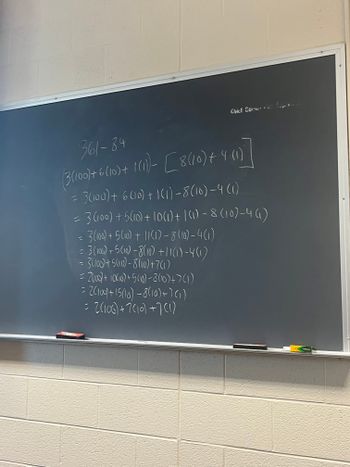 361 - 84
[3(100)+6(10)+1(1)- [8(10)+4(1)]
= 3(100)+6(10)+1(1)-8(10)-4(1)
= 3(100)+5(10)+10(1)+1(1)-8(10)-4(1)
= 3(100)+5(10)+11(1)-8(10)-4(1)
= 3(100)+5(10)-8(10)+11(1)-4(1)
= 3(100)+5(10)-8(10)+7(1)
= 2(100)+10(10)+5(10)-8(10)+7(1)
= 2(100)+15(10)-8(10)+7(1)
= 2(100)+7(10)+7(1)